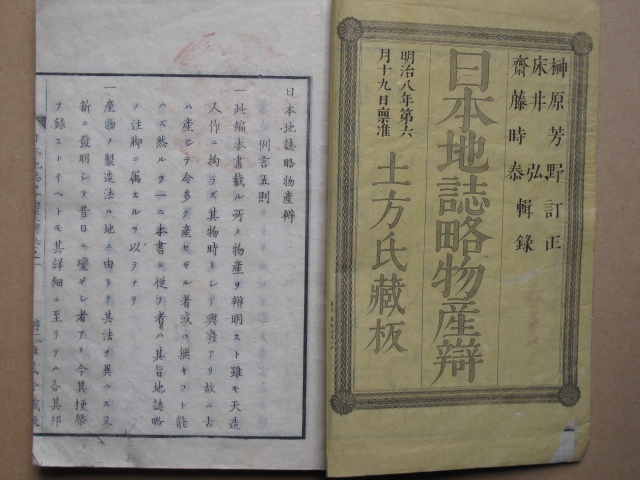 榊原芳野訂正
床井弘
齋藤時泰輯錄
日本地誌略物產辯
明治八年第六
月十九日禀准
土方氏藏板
日本地誌略物產辨
例言五則
一此編本書載ル所ノ物產ヲ辨明スト雖モ天造
人作ニ拘ラズ其物時トシテ興廢アリ故ニ古
ハ產シテ今多ク產セザル者或ハ無キフト能
ハズ然ルヲ一ニ本書ニ從フ者ハ其旨地誌略
ヲ注脚ニ属スルヲ以ラナリ
一產物ノ製造法ハ地ニ由テ其法ヲ異ニス又
新ニ發明シテ昔日ニ變ゼシ者アリ今其梗槩
ヲ錄ストイヘトモ其詳細ニ至リテハ各其邦